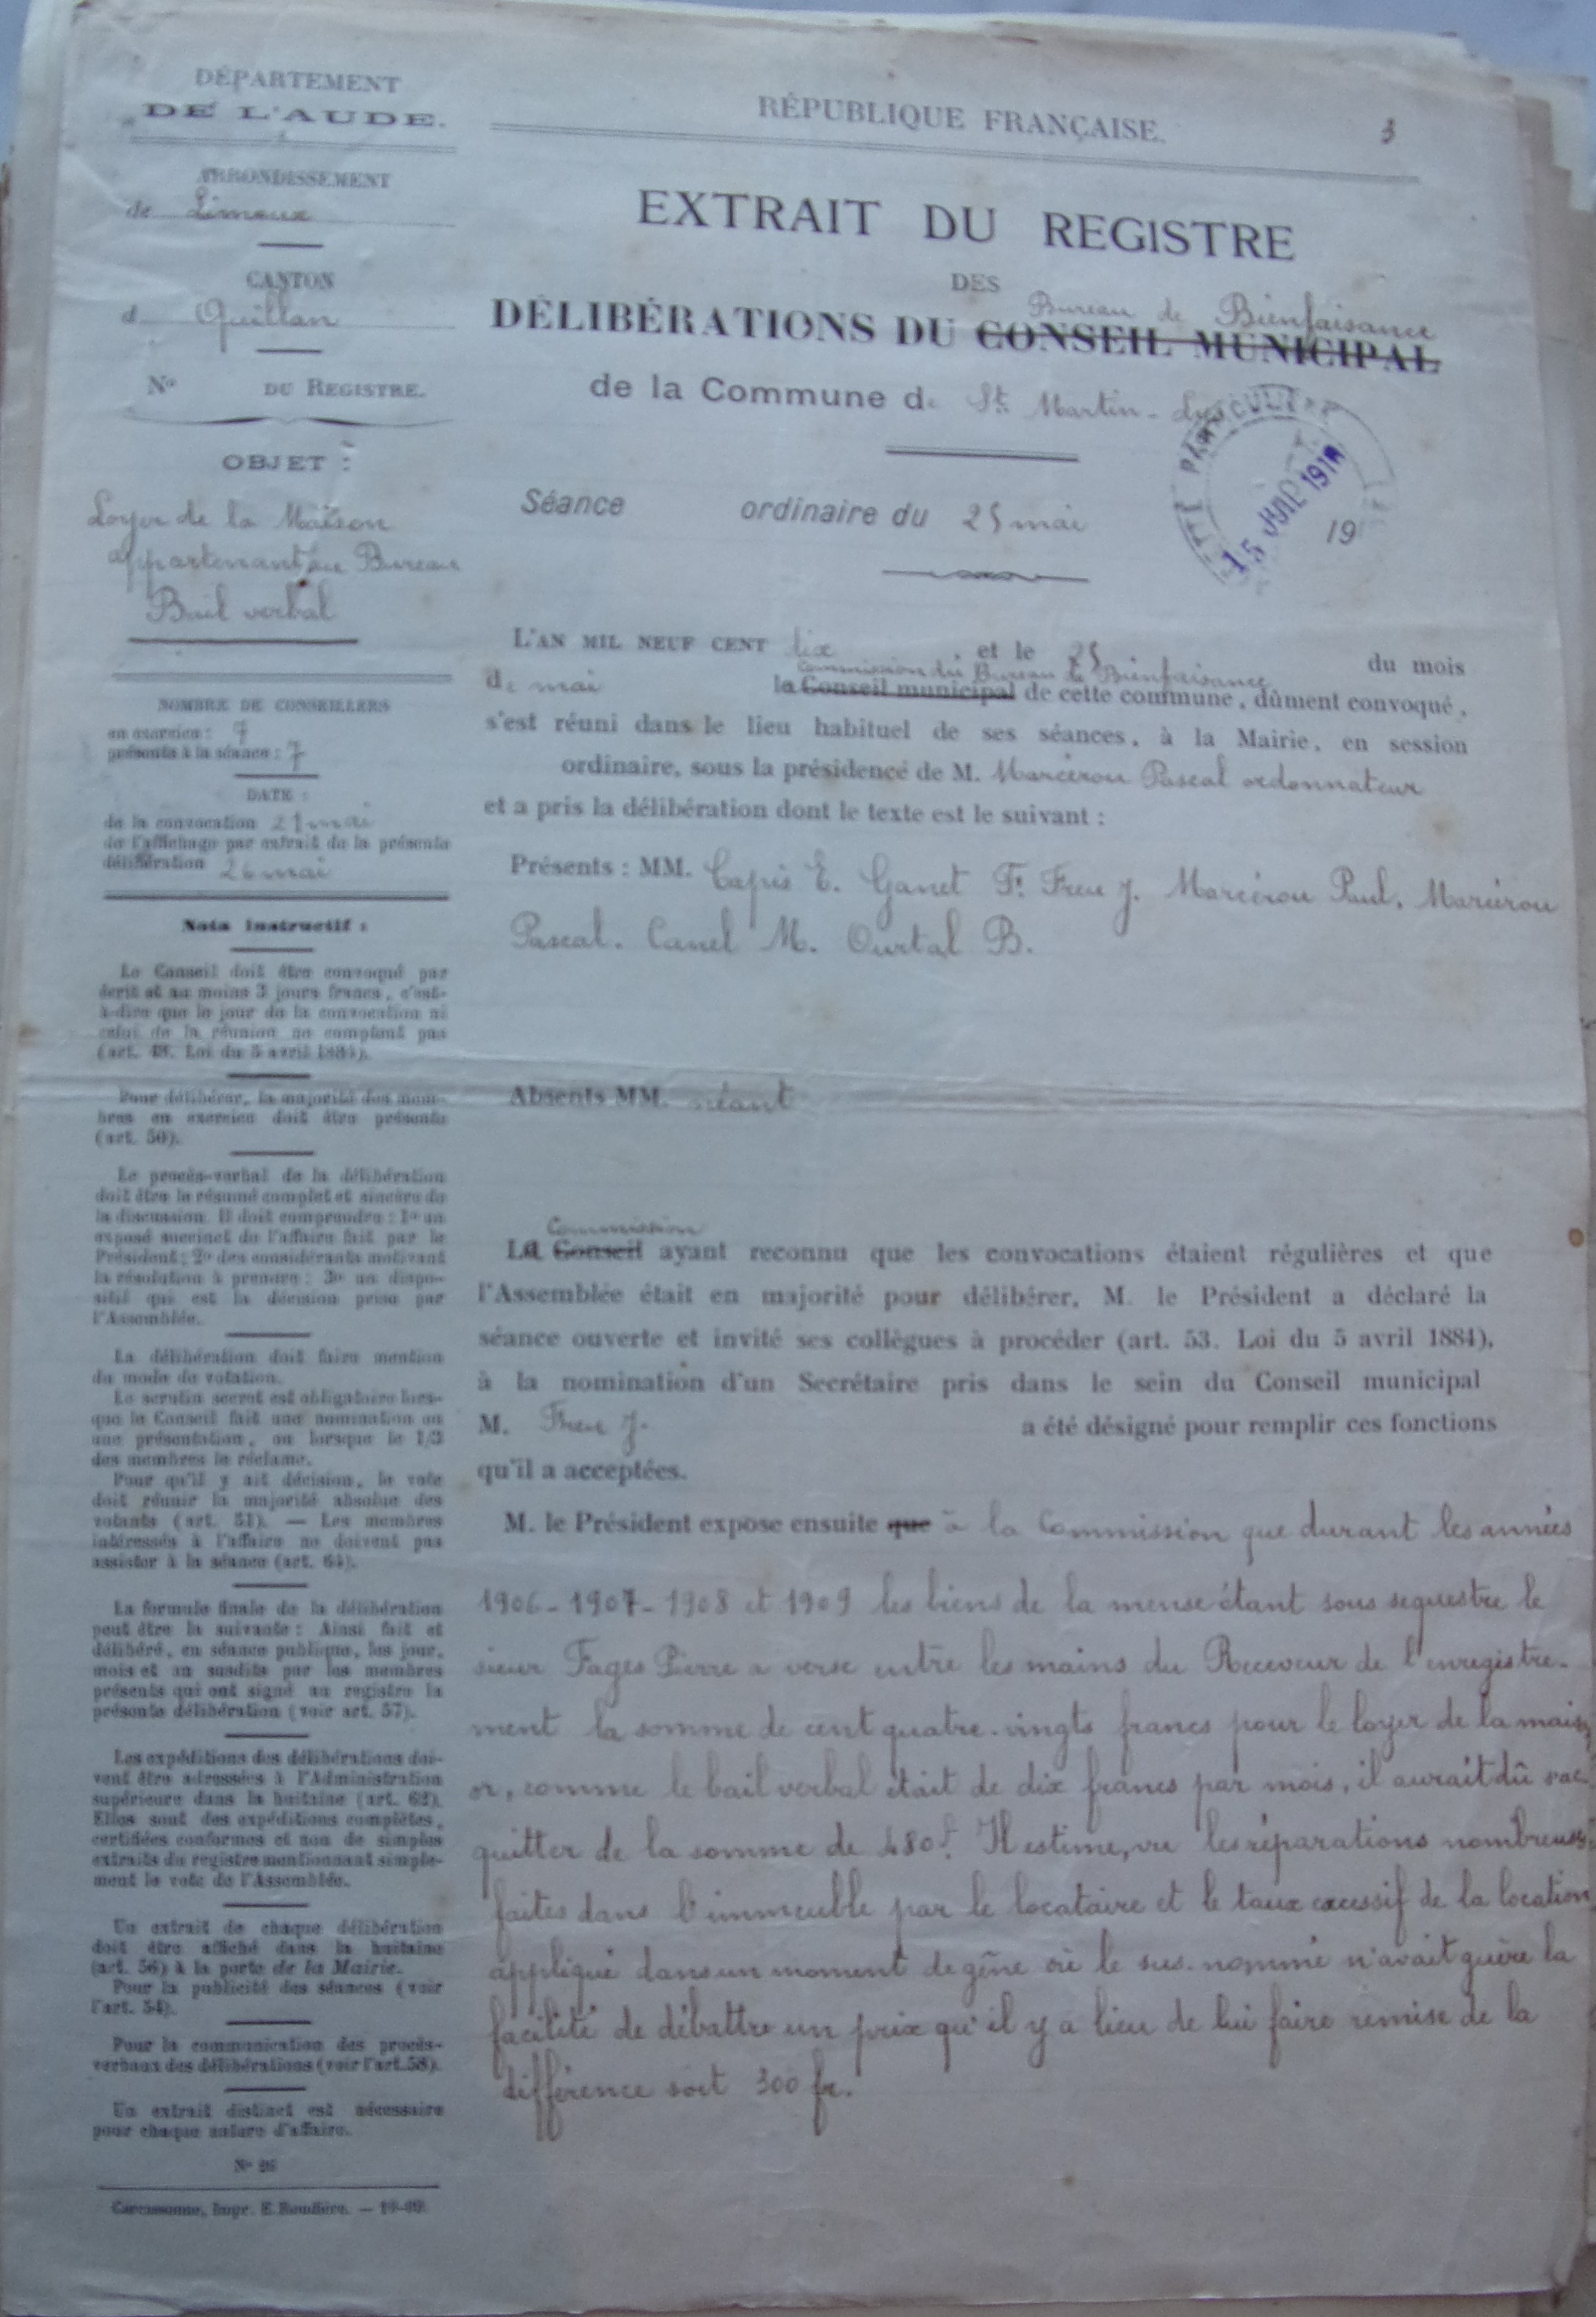 DÉPARTEMENT
DE L'AUDE.
ARRONDISSEMENT
de Limoux
CANTON
d Quillan
No DU REGISTRE.
OBJET :
Loyer de la Maison
appartenant au Bureau
Bail verbal
NOMBRE DE CONSEILLERS
en exercice : 7
présents à la séance : 7
DATE :
de la convocation 21 mai
de l'affichage par extrait de la présente
délibération 26 mai
Nota instructif :
Le Conseil doit être convoqué par
écrit et au moins 3 jours francs, c'est-
à-dire que le jour de la convocation ni
celui de la réunion ne comptent pas
(art. 48. Loi du 5 avril 1884).
Pour délibérer, la majorité des mem-
bres en exercice doit être présente
(art. 50).
Le procès-verbal de la délibération
doit être le résumé complet et sincère de
la discussion. Il doit comprendre : 1o un
exposé succinct de l'affaire fait par le
Président ; 2o des considérants motivant
la résolution à prendre ; 3o un dispo-
sitif qui est la décision prise par
l'Assemblée.
La délibération doit faire mention
du mode de votation.
Le scrutin secret est obligatoire lors-
que le Conseil fait une nomination ou
une présentation, ou lorsque le 1/3
des membres le réclame.
Pour qu'il y ait décision, le vote
doit réunir la majorité absolue des
votants (art. 51). — Les membres
intéressés à l'affaire ne doivent pas
assister à la séance (art. 64).
La formule finale de la délibération
peut être la suivante : Ainsi fait et
délibéré, en séance publique, les jour,
mois et an susdits par les membres
présents qui ont signé au registre la
présente délibération (voir art. 57).
Les expéditions des délibérations doi-
vent être adressées à l'Administration
supérieure dans la huitaine (art. 62).
Elles sont des expéditions complètes,
certifiées conformes et non de simples
extraits du registre mentionnant simple-
ment le vote de l'Assemblée.
Un extrait de chaque délibération
doit être affiché dans la huitaine
(art. 56) à la porte de la Mairie.
Pour la publicité des séances (voir
l'art. 54).
Pour la communication des procès-
verbaux des délibérations (voir l'art. 58).
Un extrait distinct est nécessaire
pour chaque nature d'affaire.
No 26
Carcassonne, Impr. E. Roudière. —
RÉPUBLIQUE FRANÇAISE.
3
EXTRAIT DU REGISTRE
DES
Bureau de Bienfaisance
DÉLIBÉRATIONS DU CONSEIL MUNICIPAL
de la Commune de St. Martin-Lys
15 JUIL 191
Séance ordinaire du 25 mai 19
L'AN MIL NEUF CENT dix, et le 25 du mois
commission du Bureau de Bienfaisance
de mai la Conseil municipal de cette commune, dûment convoqué,
s'est réuni dans le lieu habituel de ses séances, à la Mairie, en session
ordinaire, sous la présidence de M. Marcérou Pascal ordonnateur
et a pris la délibération dont le texte est le suivant :
Présents : MM. Capis E. Ganet F. Freu J. Marcérou Paul, Marcérou
Pascal. Canel M. Ourtal B.
Absents MM. néant
Commission
La Conseil ayant reconnu que les convocations étaient régulières et que
l'Assemblée était en majorité pour délibérer, M. le Président a déclaré la
séance ouverte et invité ses collègues à procéder (art. 53. Loi du 5 avril 1884),
à la nomination d'un Secrétaire pris dans le sein du Conseil municipal
M. Freu J. a été désigné pour remplir ces fonctions
qu'il a acceptées.
M. le Président expose ensuite que à la Commission que durant les années
1906-1907-1908 et 1909 les biens de la mense étant sous sequestre le
sieur Fages Pierre a versé entre les mains du Receveur de l'enregistre-
ment la somme de cent quatre-vingts francs pour le loyer de la maison,
or, comme le bail verbal était de dix francs par mois, il aurait dû s'ac-
quitter de la somme de 480f. Il estime, vu les réparations nombreuses
faites dans l'immeuble par le locataire et le taux excessif de la location
appliqué dans un moment de gêne où le sus-nommé n'avait guère la
facilité de débattre un prix qu'il y a lieu de lui faire remise de la
différence soit 300 fr.